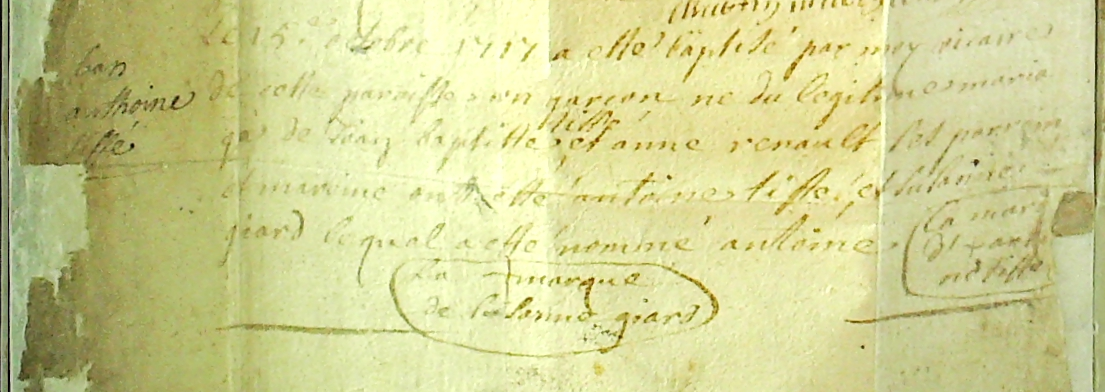 ban
anthoine
tiffé
Le 15e octobre 1717 a esté baptisé par moy vicaire
de cette paroisse un garçon né du legitime maria
ge de Jean baptiste tiffé et anne renault les parrein
et mareine ont esté antoine tiffé et
giard lequal a esté nommé antoine
la marque
de giard
la mar
tiffé